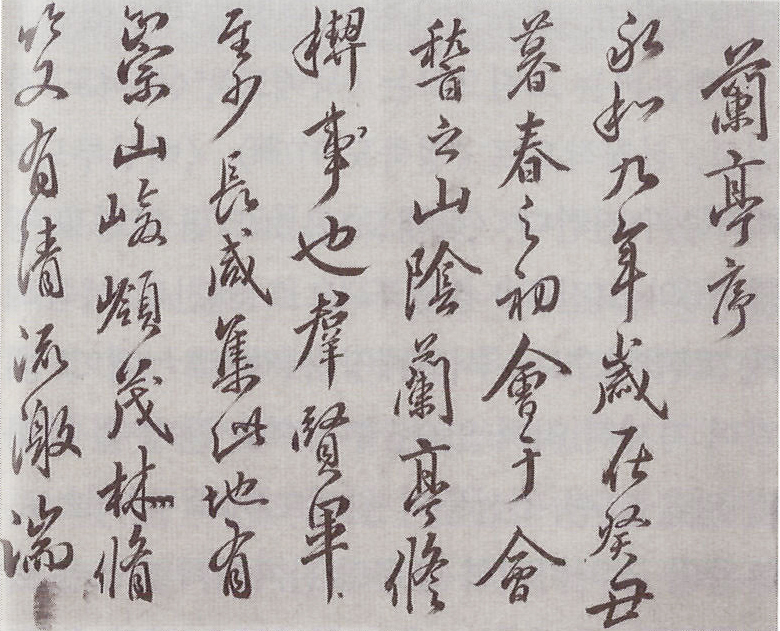 蘭亭序
永和九年歲在癸丑
暮春之初會于會
稽之山陰蘭亭脩
稧事也羣賢畢
至少長咸集此地有
崇山峻領茂林脩
竹又有清流激湍